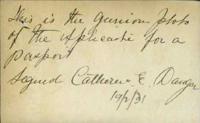 This is the genuine photo
of the applicant for a
Passport
Signed Catherine E. Danger
19/2/31